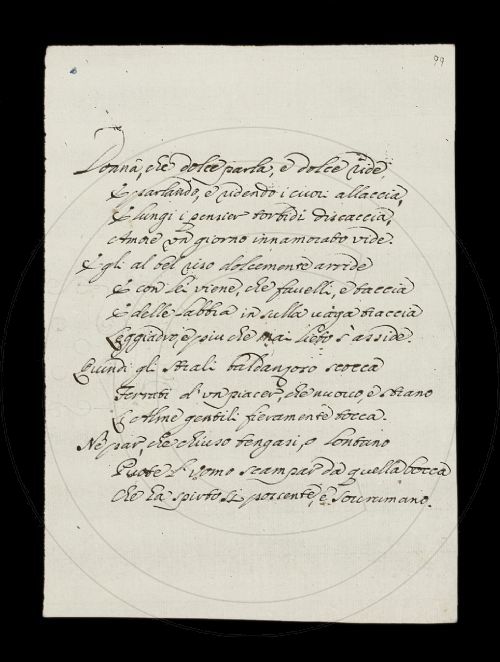 99
Donna, che dolce parla, e dolce ride,
E parlando, e ridendo i cuori allaccia,
E lungi i pensier torbidi discaccia,
Amore un giorno innamorato vide.
E gli al bel viso dolcemente arride
E con lei viene, che favelli, e taccia
E delle labbra in sulla vaga traccia
Leggiadro, e piu che mai lieto s'asside.
Quindi gli strali baldanzoso scocca
Ferrati d'un piacer, che nuovo, e strano
L'Alme gentili fieramente tocca.
Ne par, che chiuso tengasi, o lontano
Puote l'uomo scampar da quella bocca
Che ha spirto si possente, e sovrumano.